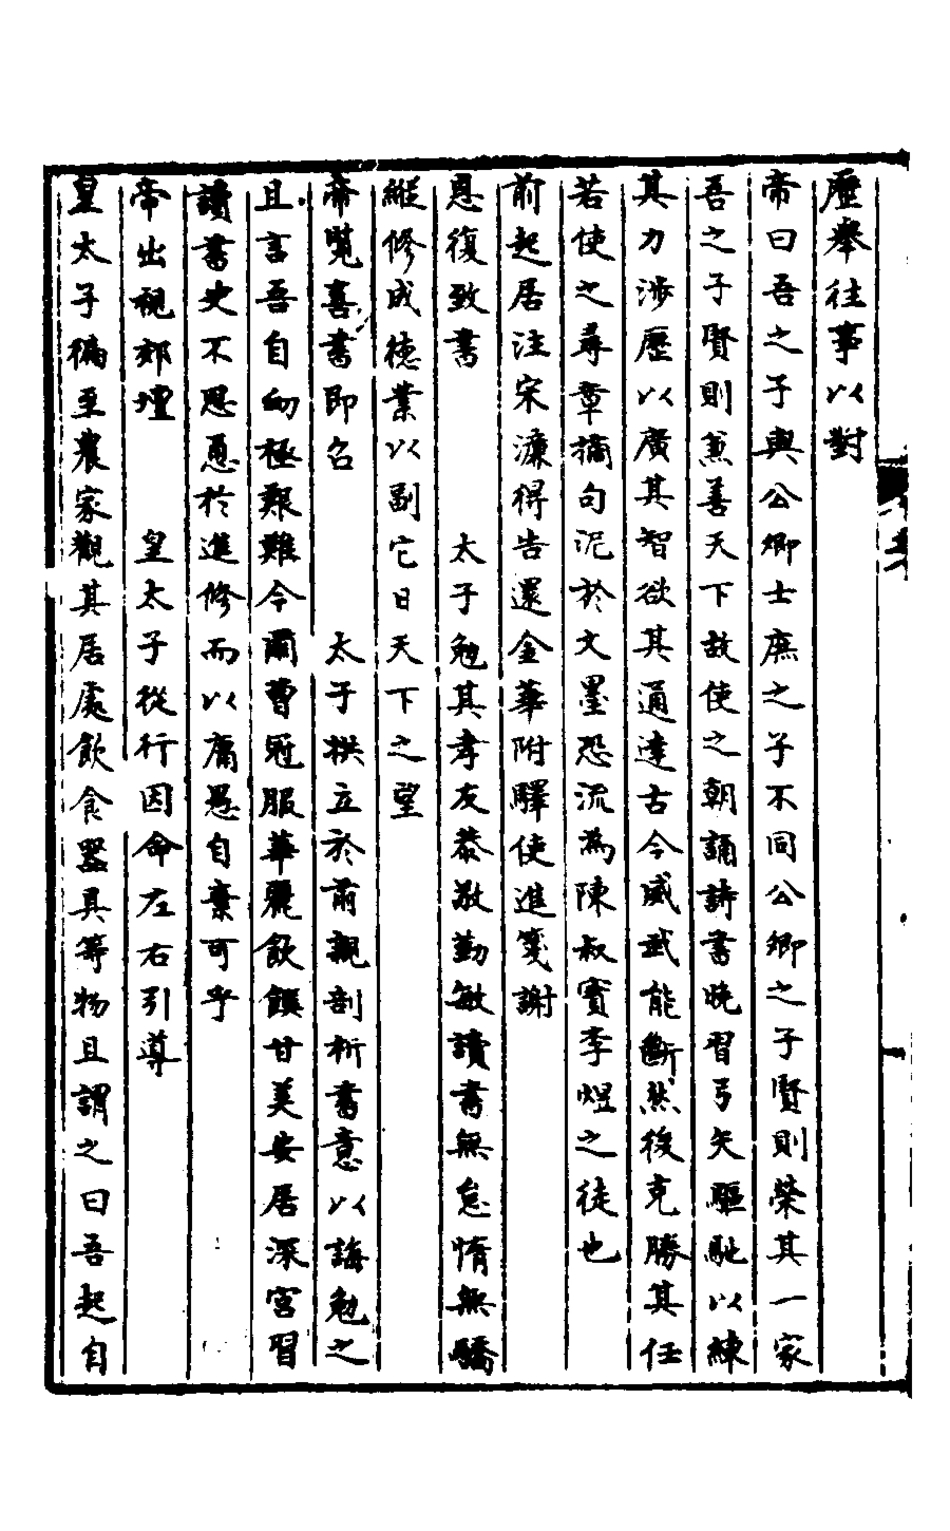 歷舉往事以對
帝曰吾之子與公卿士庶之子不同公卿之子賢則榮其一家
吾之子賢則兼善天下故使之朝誦詩書晚習弓矢驅馳以練
其力涉歷以廣其智欲其通達古今威武能斷然後克勝其任
若使之尋章摘句泥於文墨恐流為陳叔寶李煜之徒也
前起居注宋濂得告還金華附驛使進箋謝
恩復致書　太子勉其孝友恭敬勤敏讀書無怠惰無驕
縱修成德業以副它日天下之望
帝覽喜書即名　太子拱立於前親剖析書意以誨勉之
且言吾自幼極艱難今爾曹冠服華麗飲饌甘美安居深宮習
讀書史不思勇於進修而以庸愚自棄可乎
帝出視郊壇　皇太子從行因命左右引導
皇太子徧至農家觀其居處飲食器具等物且謂之曰吾起自